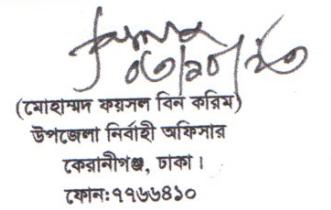 ০৩/১০/২৩
(মোহাম্মদ ফয়সল বিন করিম)
উপজেলা নির্বাহী অফিসার
কেরানীগঞ্জ, ঢাকা।
ফোন: ৭৭৬৬৪১০